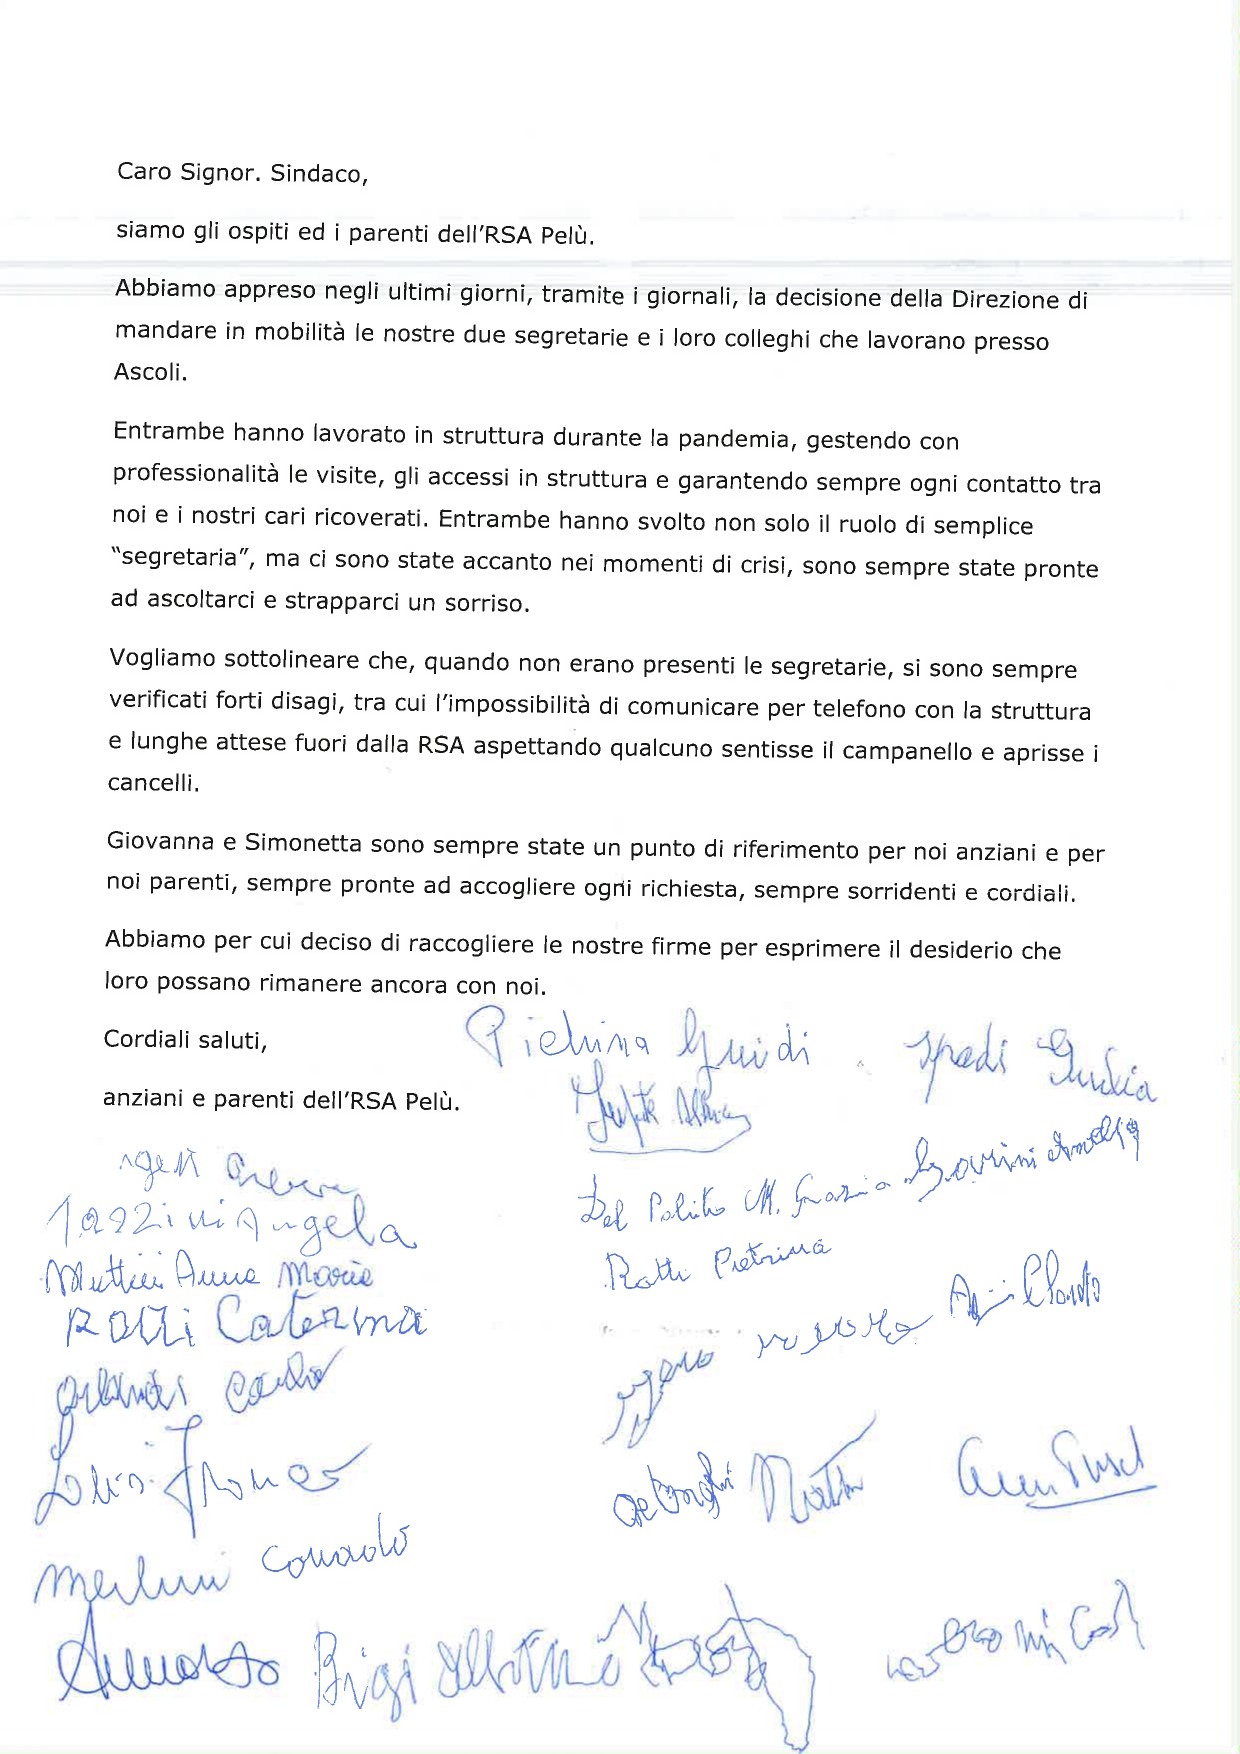 Caro Signor. Sindaco,
siamo gli ospiti ed i parenti dell'RSA Pelù.
Abbiamo appreso negli ultimi giorni, tramite i giornali, la decisione della Direzione di
mandare in mobilità le nostre due segretarie e i loro colleghi che lavorano presso
Ascoli.
Entrambe hanno lavorato in struttura durante la pandemia, gestendo con
professionalità le visite, gli accessi in struttura e garantendo sempre ogni contatto tra
noi e i nostri cari ricoverati. Entrambe hanno svolto non solo il ruolo di semplice
"segretaria", ma ci sono state accanto nei momenti di crisi, sono sempre state pronte
ad ascoltarci e strapparci un sorriso.
Vogliamo sottolineare che, quando non erano presenti le segretarie, si sono sempre
verificati forti disagi, tra cui l'impossibilità di comunicare per telefono con la struttura
e lunghe attese fuori dalla RSA aspettando qualcuno sentisse il campanello e aprisse i
cancelli.
Giovanna e Simonetta sono sempre state un punto di riferimento per noi anziani e per
noi parenti, sempre pronte ad accogliere ogni richiesta, sempre sorridenti e cordiali.
Abbiamo per cui deciso di raccogliere le nostre firme per esprimere il desiderio che
loro possano rimanere ancora con noi.
Cordiali saluti,
Guidi
anziani e parenti dell'RSA Pelù.
Angela
Del M. Grazia
Ratti Pietrina
Anna Maria
Caterina
Carlo
Franco
Merlini Corrado
Bigi